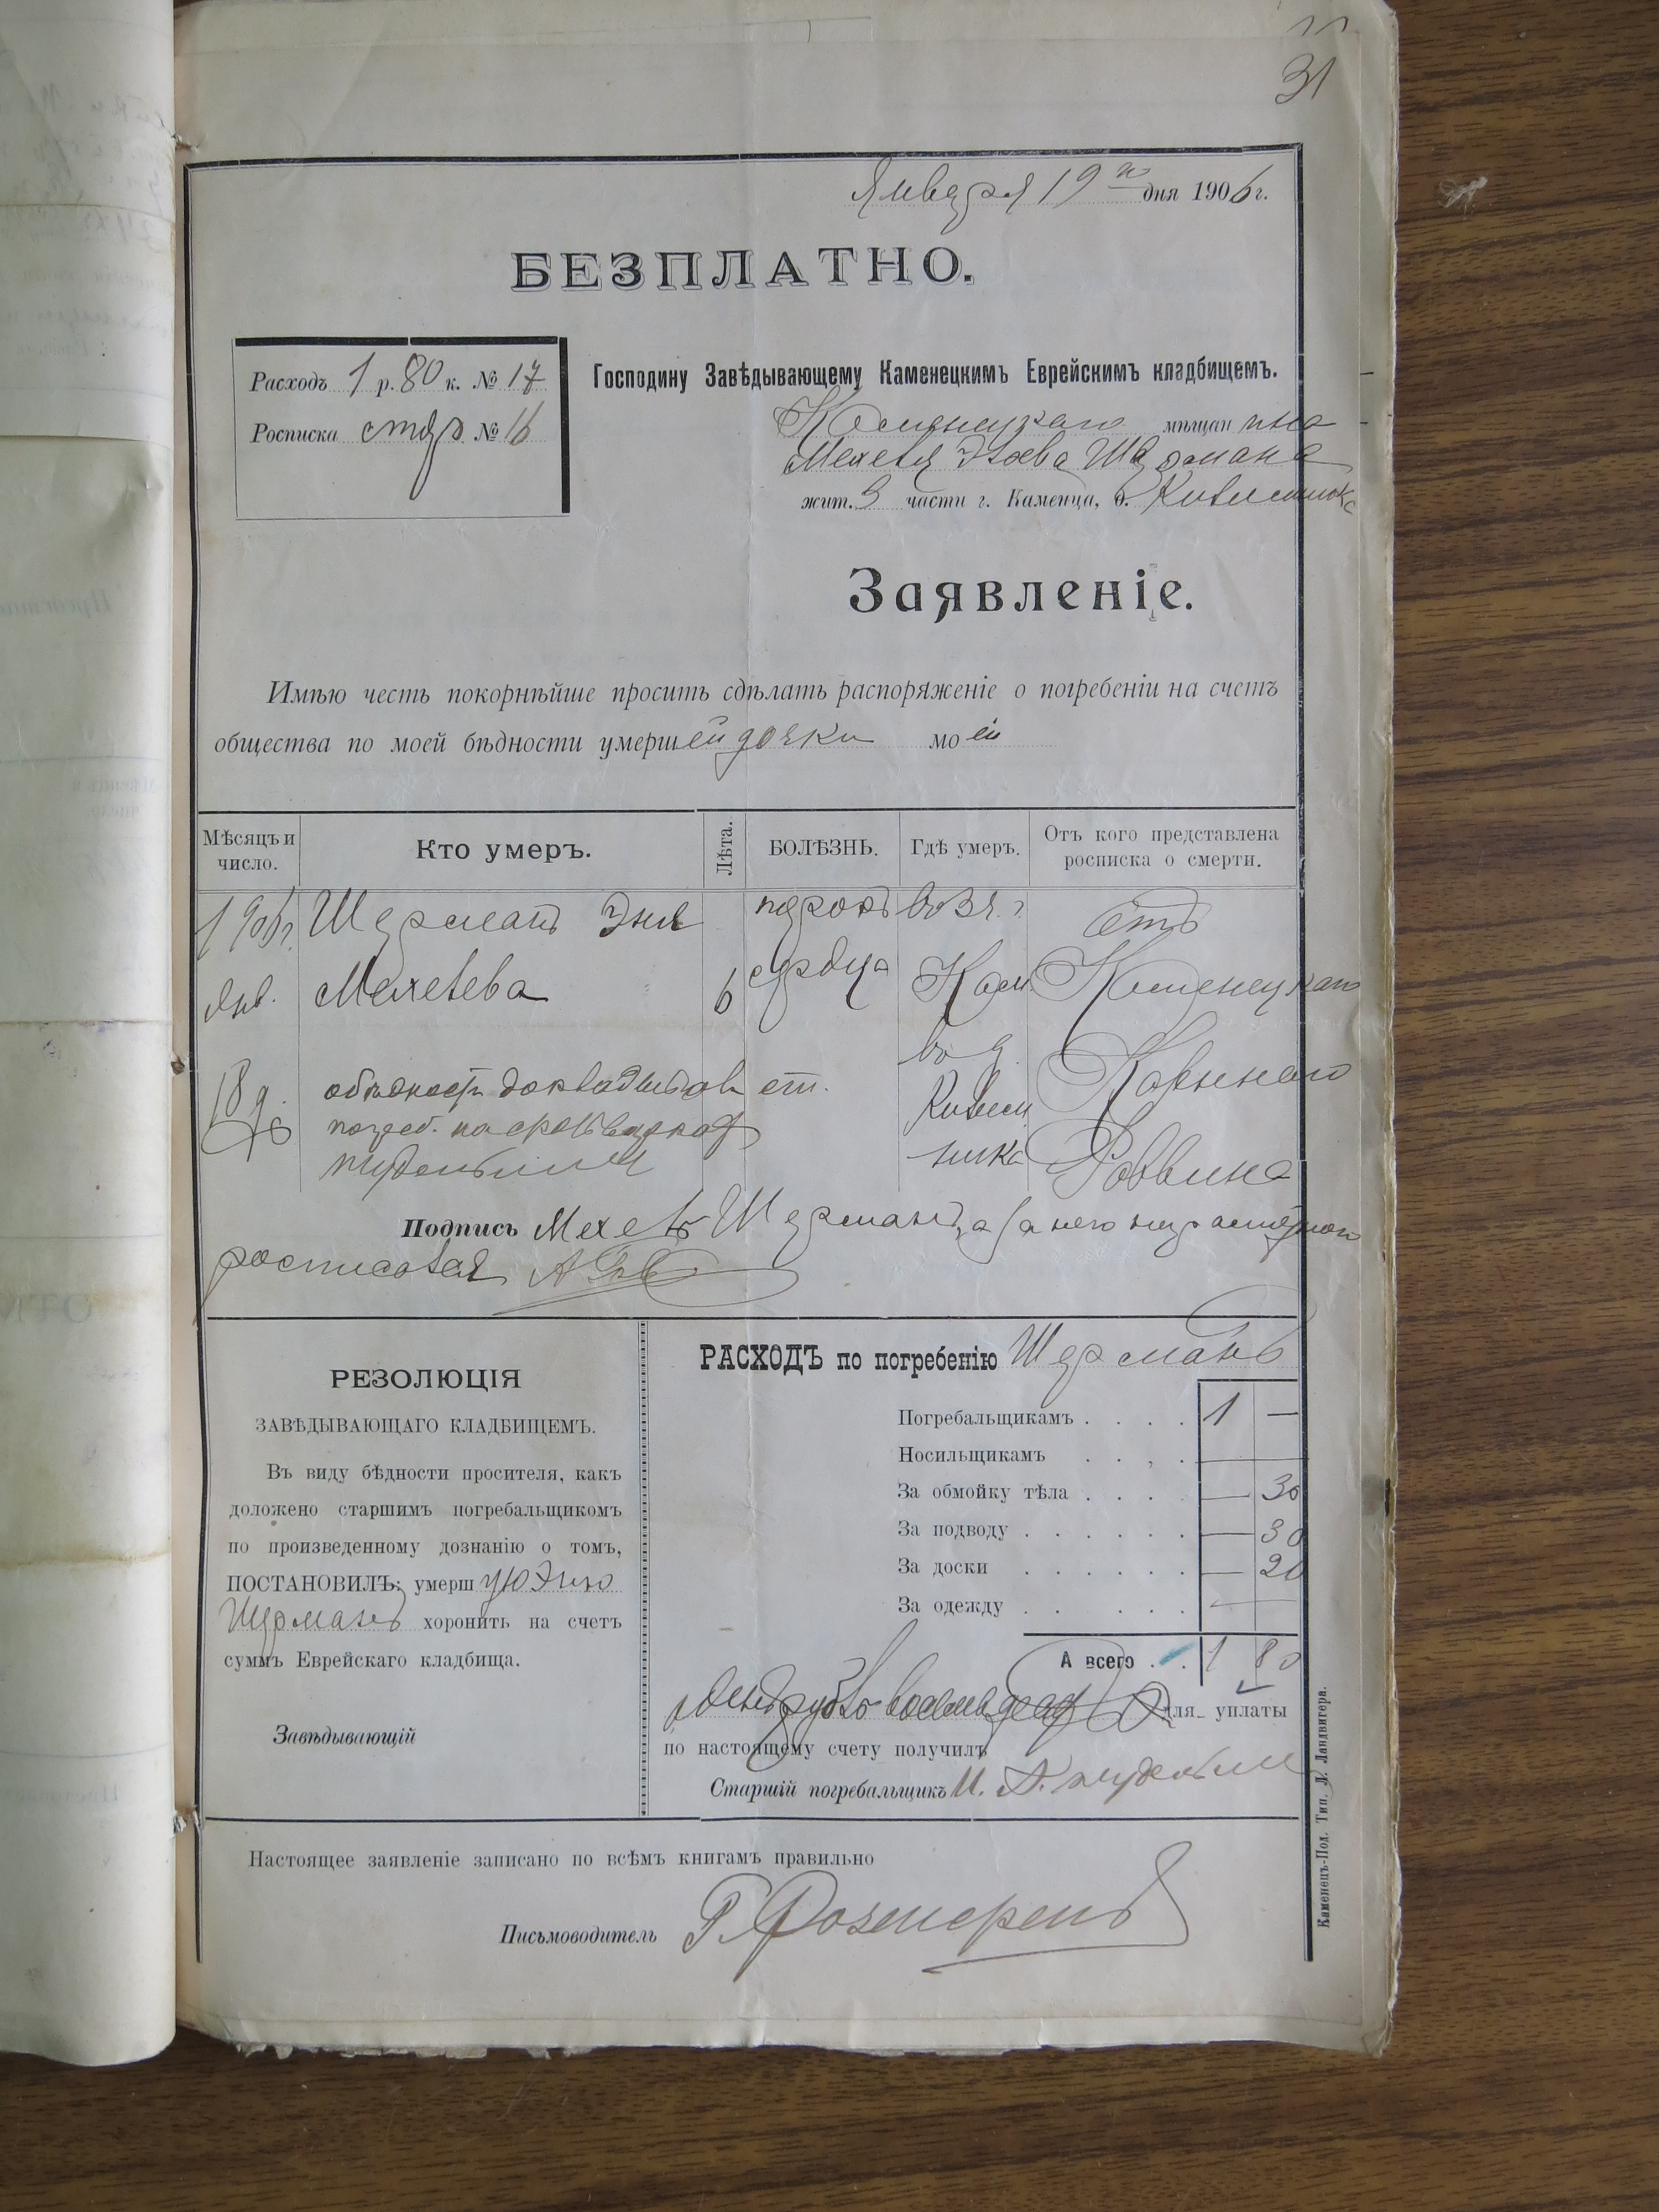 31
Января 19 го дня 1906 г.
БЕЗПЛАТНО.
Расходъ 1 р. 80 к. № 17
Росписка стар № 16
Господину Завѣдывающему Каменецкимъ Еврейскимъ кладбищемъ.
Каменецкаго мѣщанина
Мехеля Шермана
жит. 3 части г. Каменца, д.
Заявленіе.
Имѣю честь покорнѣйше просить сдѣлать распоряженіе о погребеніи на счетъ
общества по моей бѣдности умершей дочки моей
Мѣсяцъ и число. Кто умеръ. Лѣта. БОЛѢЗНЬ. Гдѣ умеръ. Отъ кого представлена росписка о смерти.
1906 г. Шерманъ Эня порокъ во 3 ч. г. Отъ
Янв. Мехелева 6 сердца Кам. Каменецкаго
18 д. въ д. Казеннаго
о бѣдности докладывалъ ст. Раввина
погреб.
Подпись Мехель Шерманъ, а за него неграмотнаго
росписался
РЕЗОЛЮЦІЯ
ЗАВѢДЫВАЮЩАГО КЛАДБИЩЕМЪ.
Въ виду бѣдности просителя, какъ
доложено старшимъ погребальщикомъ
по произведенному дознанію о томъ,
ПОСТАНОВИЛЪ: умершую Эню
Шерманъ хоронить на счетъ
суммъ Еврейскаго кладбища.
Завѣдывающій
РАСХОДЪ по погребенію Шерманъ
Погребальщикамъ . . . . 1 —
Носильщикамъ . . . . —
За обмойку тѣла . . . . — 30
За подводу . . . . . . — 30
За доски . . . . . . — 20
За одежду . . . . . —
А всего . . 1 80
Одинъ рубль восемьдесятъ для уплаты
по настоящему счету получилъ
Старшій погребальщикъ
Настоящее заявленіе записано по всѣмъ книгамъ правильно
Письмоводитель
Каменецъ-Под. Тип. Л. Ландвигера.